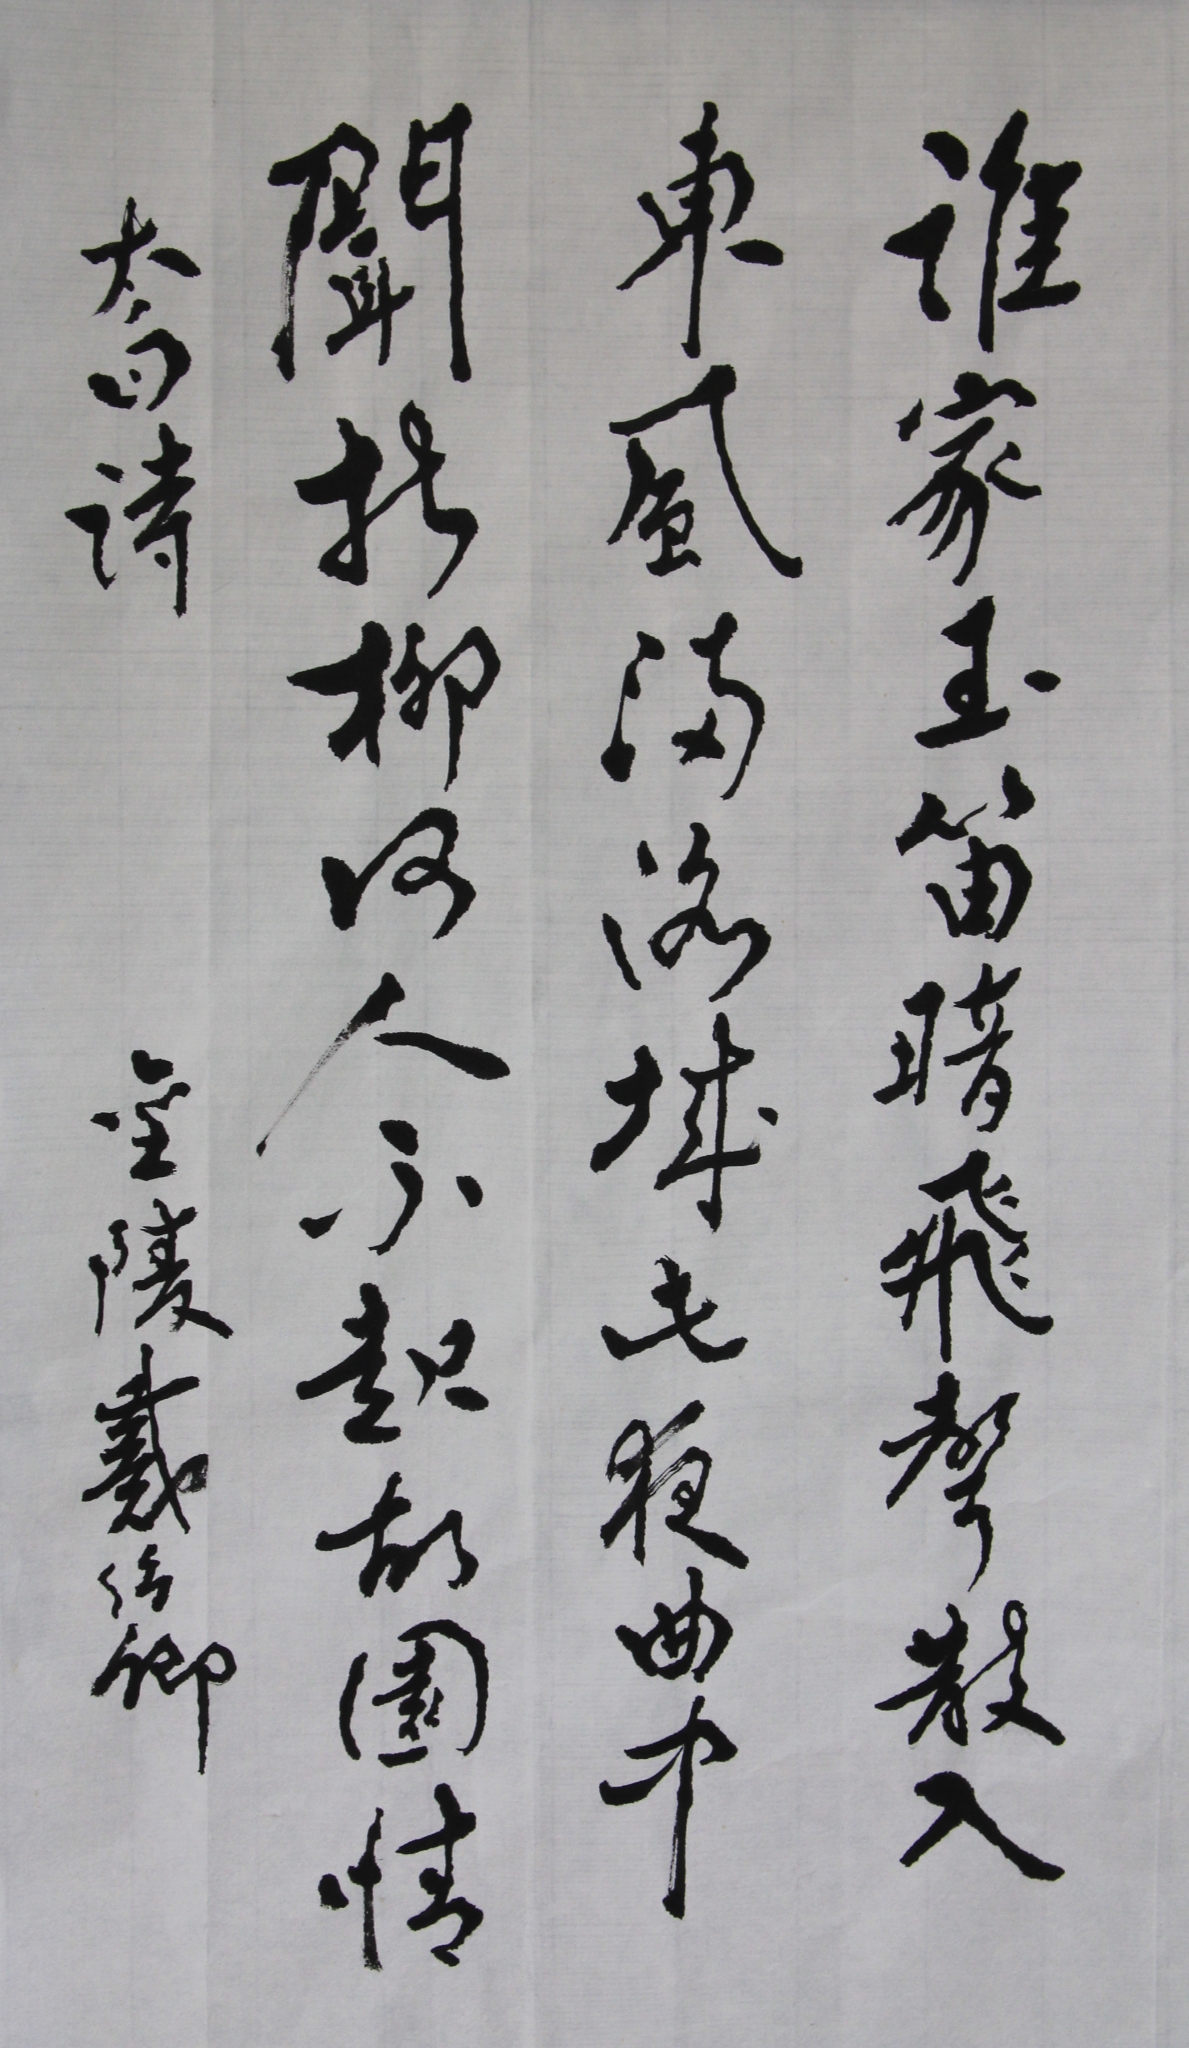 誰家玉笛暗飛聲散入
東風滿洛城此夜曲中
聞折柳何人不起故園情
太白詩 金陵戴卿